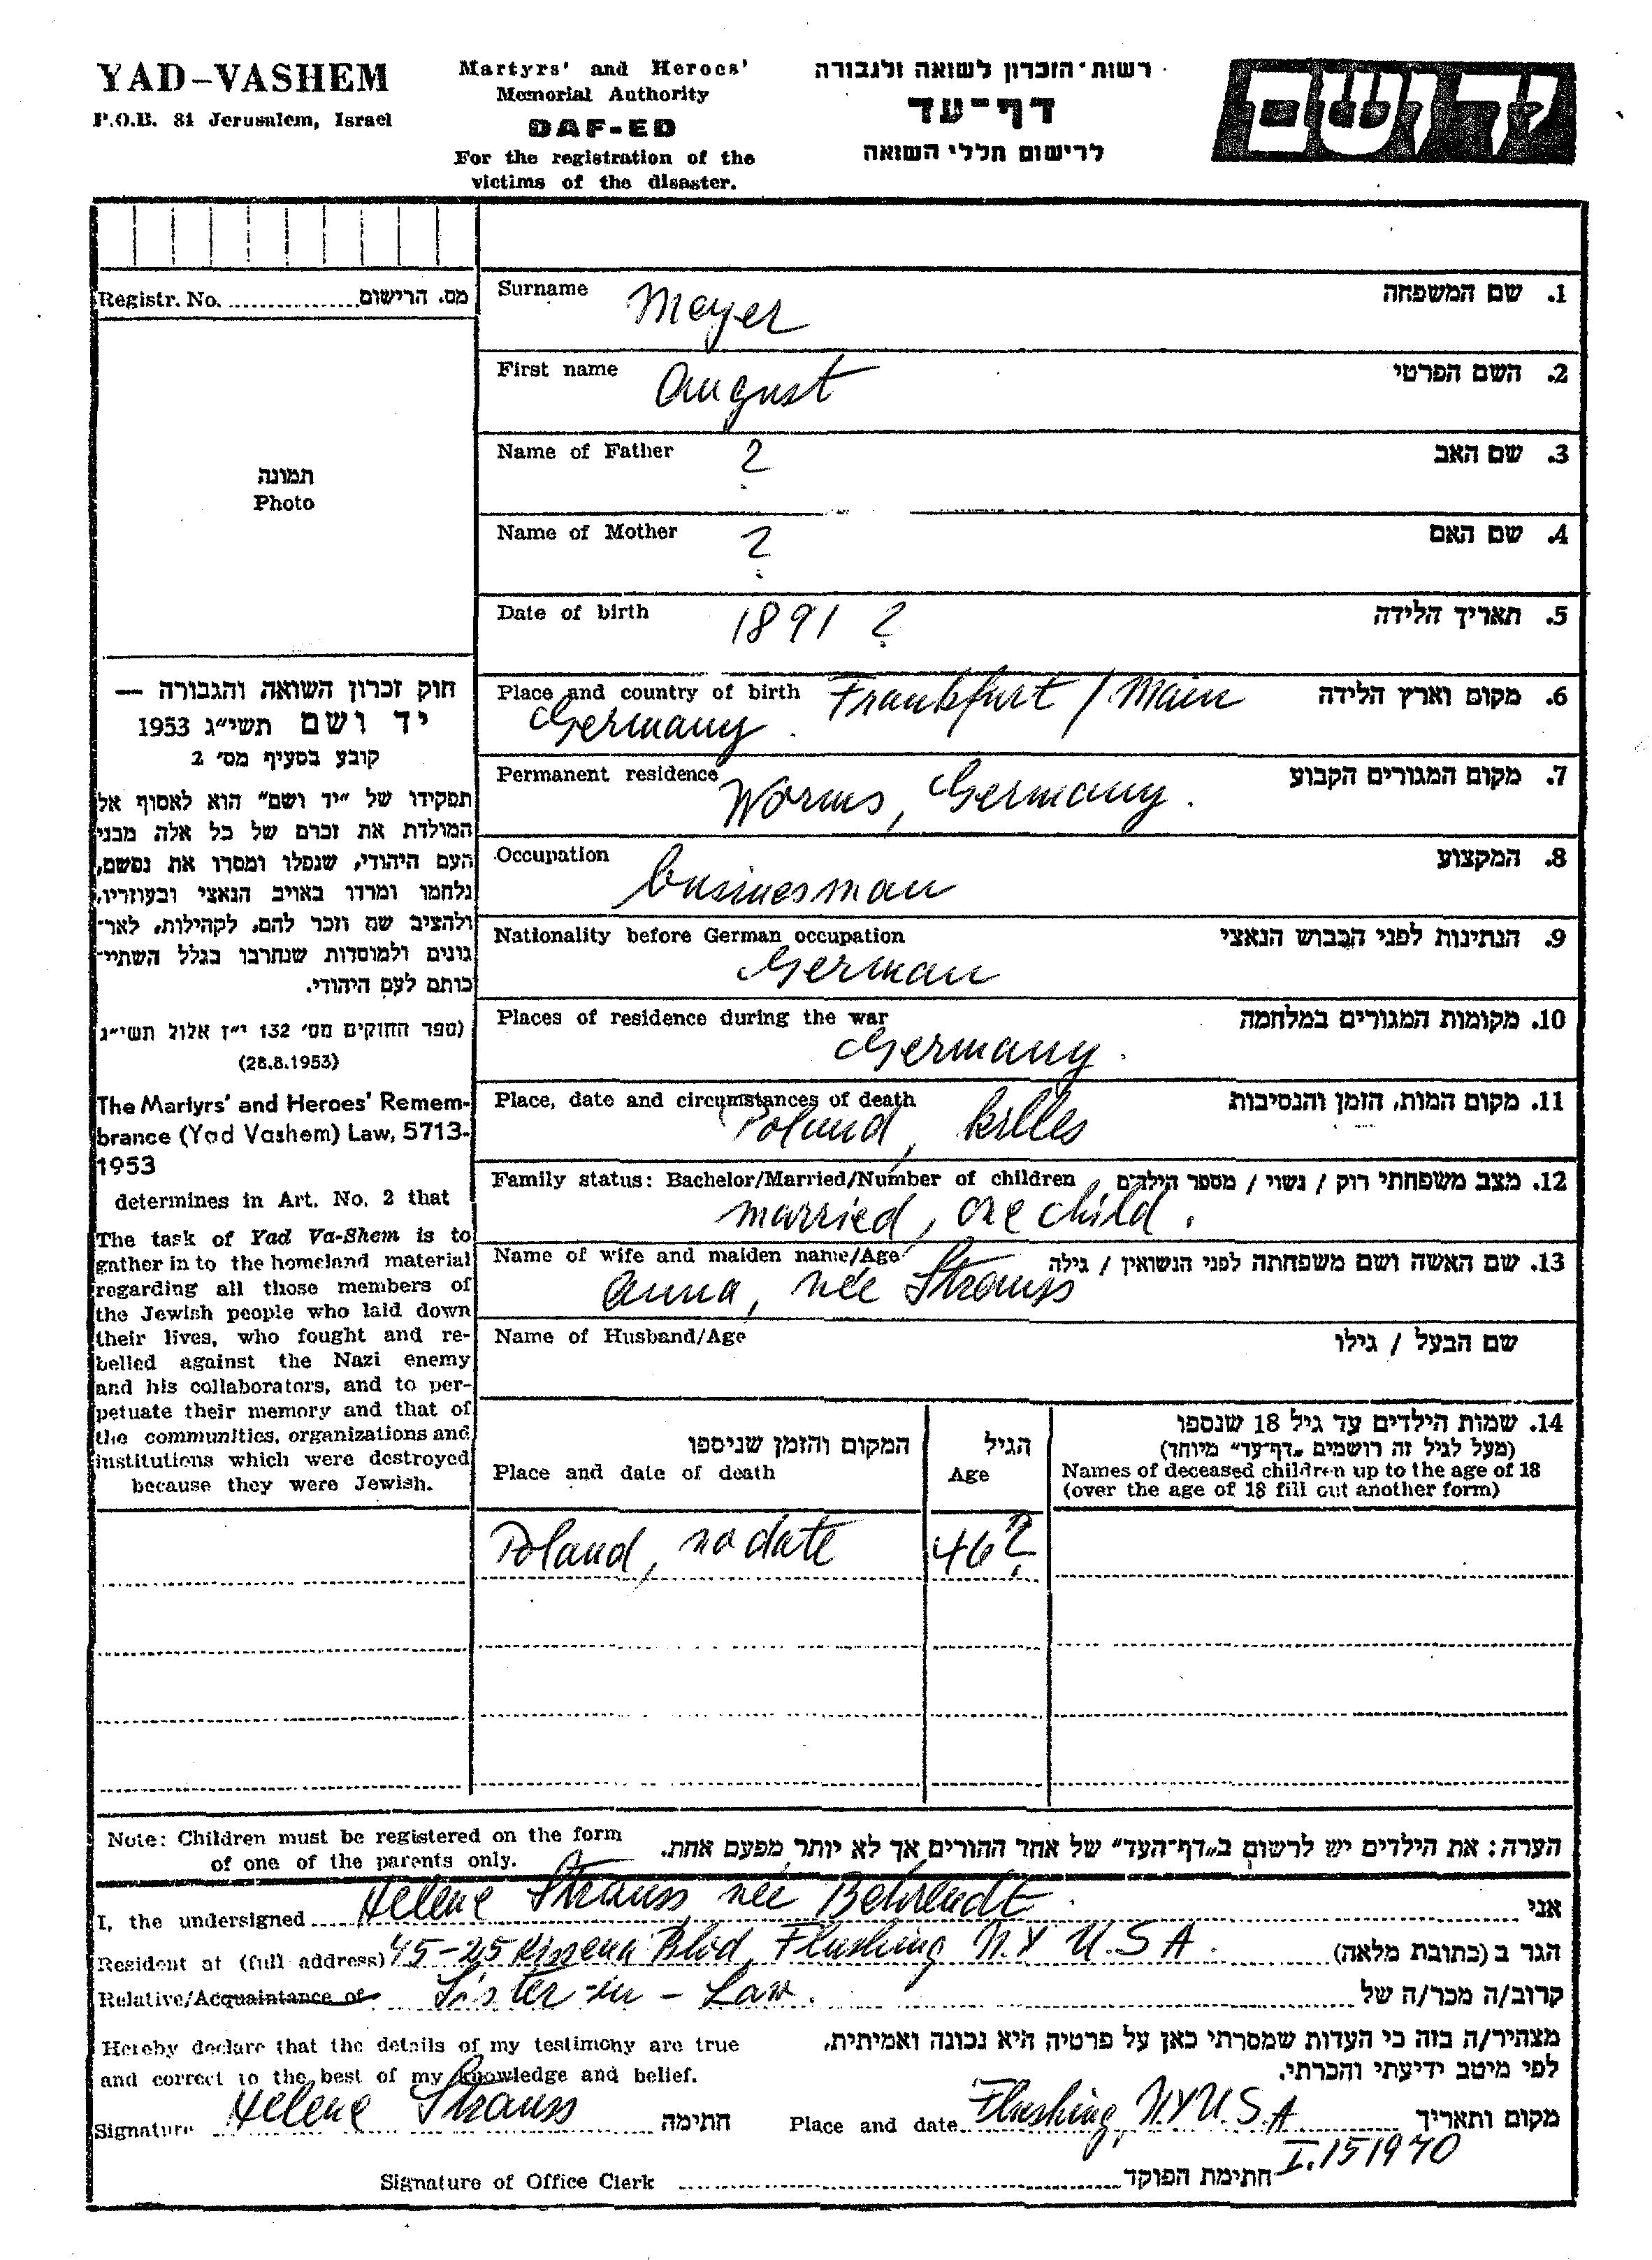 YAD-VASHEM
P.O.B. 84 Jerusalem, Israel
Martyrs' and Heroes'
Memorial Authority
DAF-ED
For the registration of the
victims of the disaster.
רשות-הזכרון לשואה ולגבורה
דף-עד
לרישום חללי השואה
יד ושם
Registr. No. ............... מס. הרישום
תמונה
Photo
חוק זכרון השואה והגבורה —
יד ושם תשי"ג 1953
קובע בסעיף מס' 2
תפקידו של "יד ושם" הוא לאסוף אל
המולדת את זכרם של כל אלה מבני
העם היהודי, שנפלו ומסרו את נפשם,
נלחמו ומרדו באויב הנאצי ובעוזריו,
ולהציב שם וזכר להם, לקהילות, לאר-
גונים ולמוסדות שנחרבו בגלל השתיי-
כותם לעם היהודי.
(ספר החוקים מס' 132 י"ז אלול תשי"ג
(28.8.1953)
The Martyrs' and Heroes' Remem-
brance (Yad Vashem) Law, 5713-
1953
determines in Art. No. 2 that
The task of Yad Va-Shem is to
gather in to the homeland material
regarding all those members of
the Jewish people who laid down
their lives, who fought and re-
belled against the Nazi enemy
and his collaborators, and to per-
petuate their memory and that of
the communities, organizations and
institutions which were destroyed
because they were Jewish.
Surname Meyer 1. שם המשפחה
First name August 2. השם הפרטי
Name of Father ? 3. שם האב
Name of Mother ? 4. שם האם
Date of birth 1891 ? 5. תאריך הלידה
Place and country of birth Frankfurt / Main 6. מקום וארץ הלידה
Germany.
Permanent residence Worms, Germany. 7. מקום המגורים הקבוע
Occupation businesman 8. המקצוע
Nationality before German occupation 9. הנתינות לפני הכבוש הנאצי
German
Places of residence during the war 10. מקומות המגורים במלחמה
Germany.
Place, date and circumstances of death 11. מקום המות, הזמן והנסיבות
Poland, killes
Family status: Bachelor/Married/Number of children 12. מצב משפחתי רוק / נשוי / מספר הילדים
married, one child.
Name of wife and maiden name/Age 13. שם האשה ושם משפחתה לפני הנשואין / גילה
Anna, née Strauss
Name of Husband/Age שם הבעל / גילו
14. שמות הילדים עד גיל 18 שנספו
(מעל לגיל זה רושמים "דף-עד" מיוחד)
Names of deceased children up to the age of 18
(over the age of 18 fill out another form)
הגיל
Age
המקום והזמן שניספו
Place and date of death
Poland, no date 46 ?
Note: Children must be registered on the form
of one of the parents only.
הערה: את הילדים יש לרשום ב"דף-העד" של אחד ההורים אך לא יותר מפעם אחת.
I, the undersigned Helene Strauss née Behrendt. אני
Resident at (full address) 45-25 Kissena Blvd, Flushing N.Y U.S A. הגר ב (כתובת מלאה)
Relative/Acquaintance of Sister-in-Law. קרוב/ה מכר/ה של
Hereby declare that the details of my testimony are true
and correct to the best of my knowledge and belief.
מצהיר/ה בזה כי העדות שמסרתי כאן על פרטיה היא נכונה ואמיתית,
לפי מיטב ידיעתי והכרתי.
Signature Helene Strauss חתימה
Place and date Flushing, N.Y U.S.A מקום ותאריך
I.15 1970
Signature of Office Clerk חתימת הפוקד